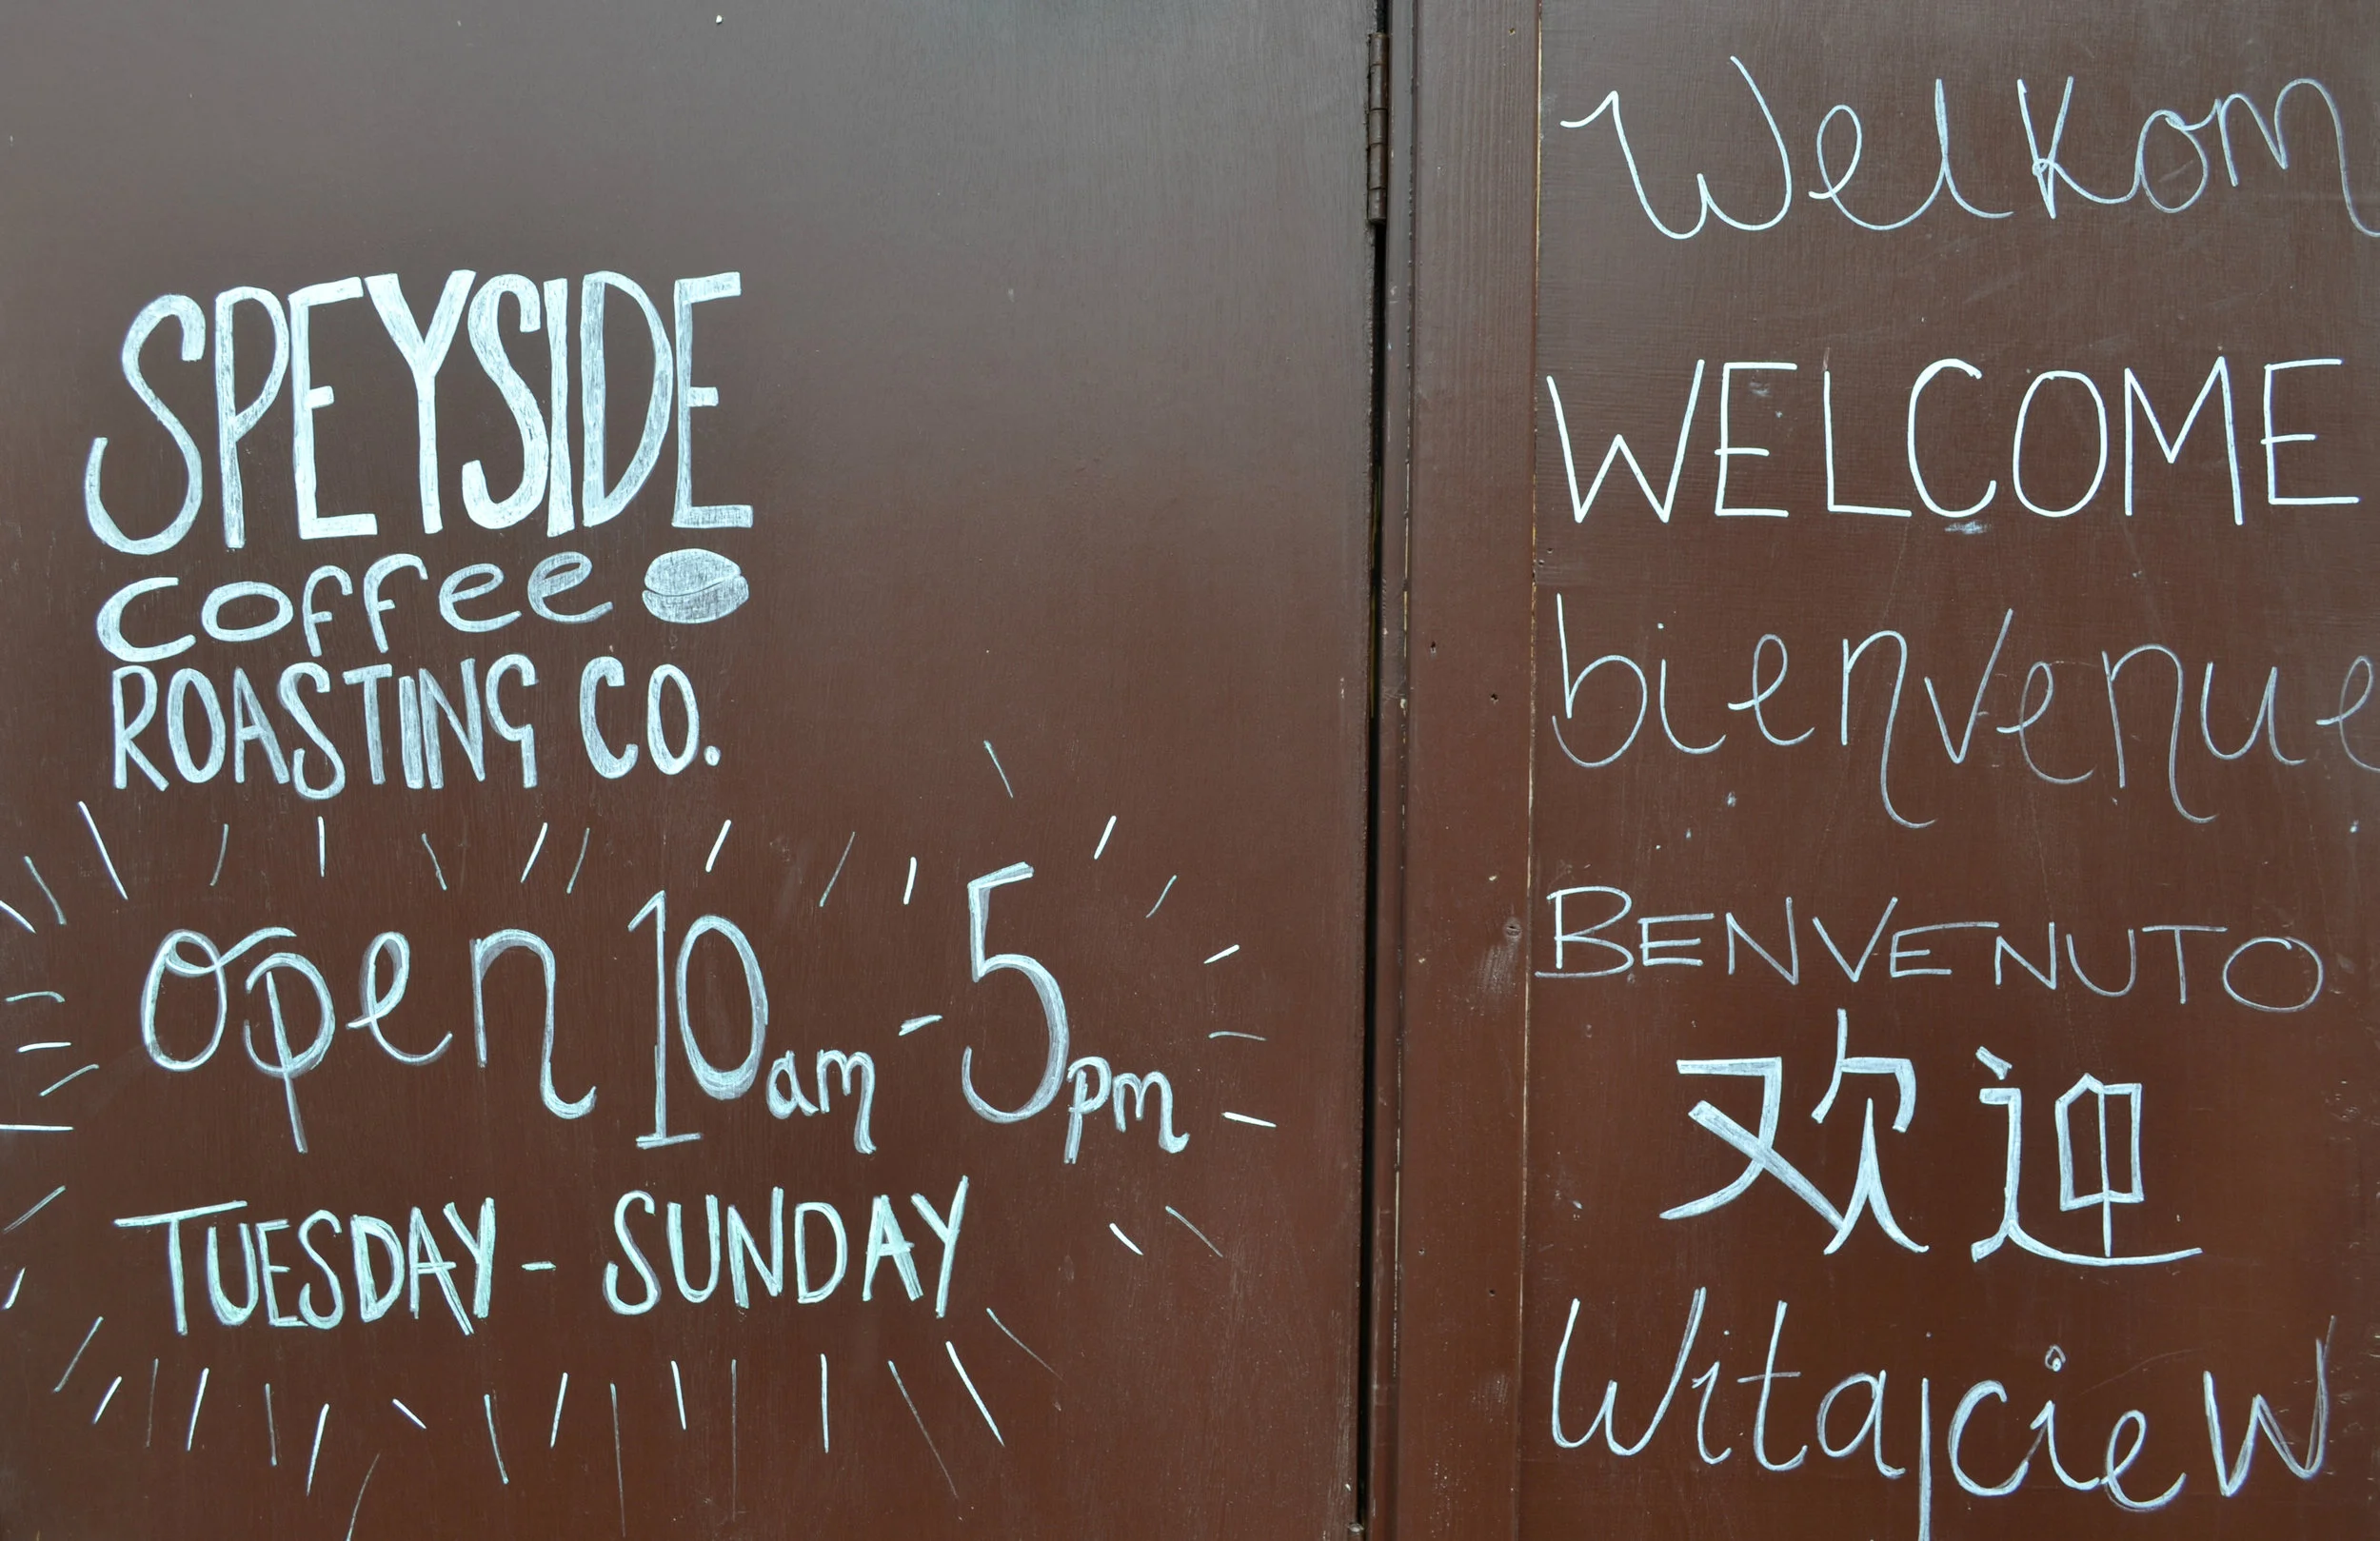 SPEYSIDE
coffee
ROASTING CO.
open 10am - 5pm
TUESDAY - SUNDAY
Welkom
WELCOME
bienvenue
BENVENUTO
欢迎
Witajcie W